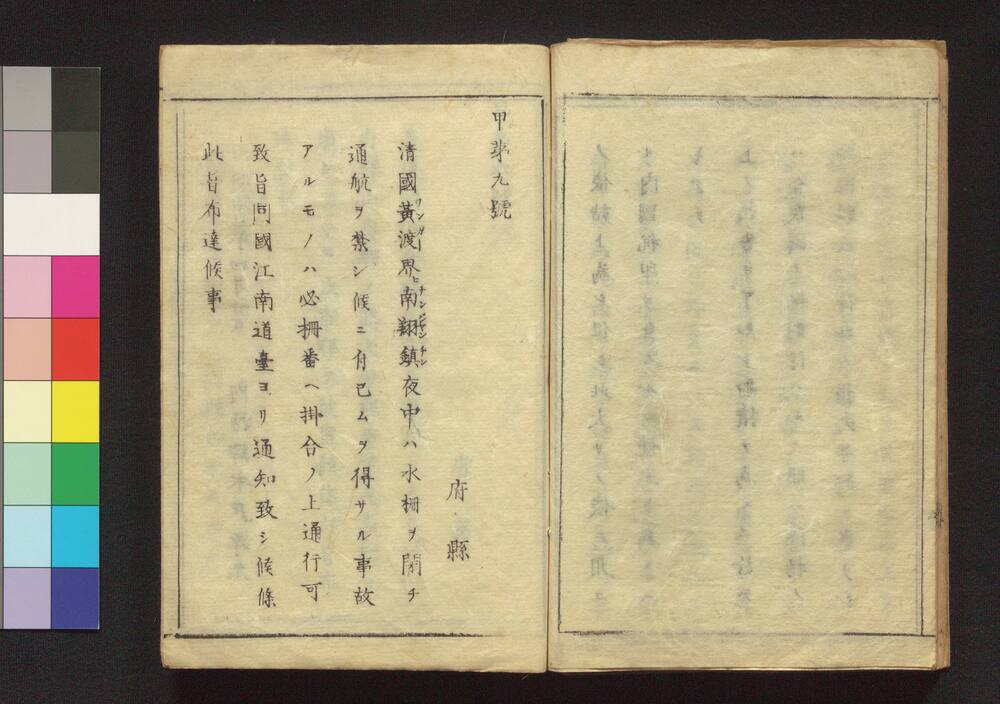 甲第九號
府縣
清國黃渡界ヒ南翔鎮夜中ハ水柵ヲ閉チ
通航ヲ禁シ候ニ付已ムヲ得サル事故
アルモノハ必柵番ヘ掛合ノ上通行可
致旨同國江南道臺ヨリ通知致シ候條
此旨布達候事